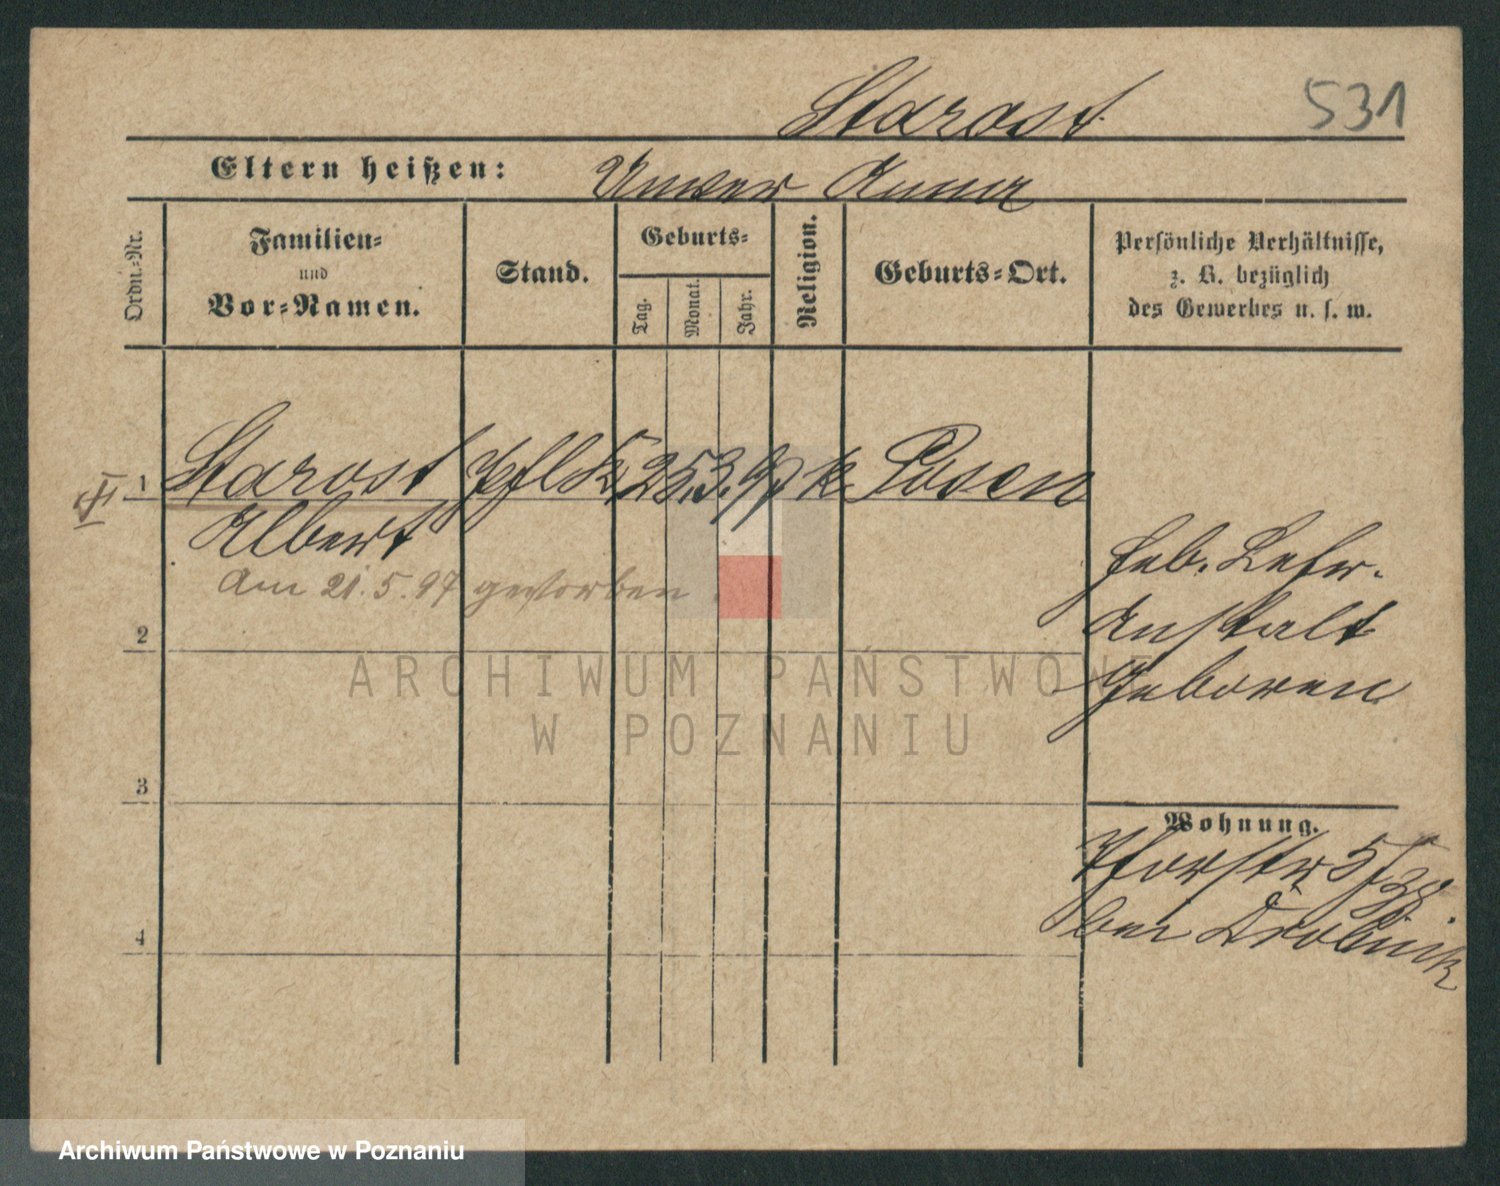 Starost 531
Eltern heißen: Unver Anna
Ordn.-Nr.
Familien-
und
Vor-Namen.
Stand.
Geburts-
Tag.
Monat.
Jahr.
Religion.
Geburts-Ort.
Persönliche Verhältnisse,
z. B. bezüglich
des Gewerbes u. s. w.
1 Starost Pfl K 25. 3. 97 k. Posen
Albert
Am 21. 5. 97 gestorben.
Heb. Lehr-
Anstalt
Geboren
2
3
4
Wohnung.
bei Drobnik
ARCHIWUM PAŃSTWOWE
W POZNANIU
Archiwum Państwowe w Poznaniu